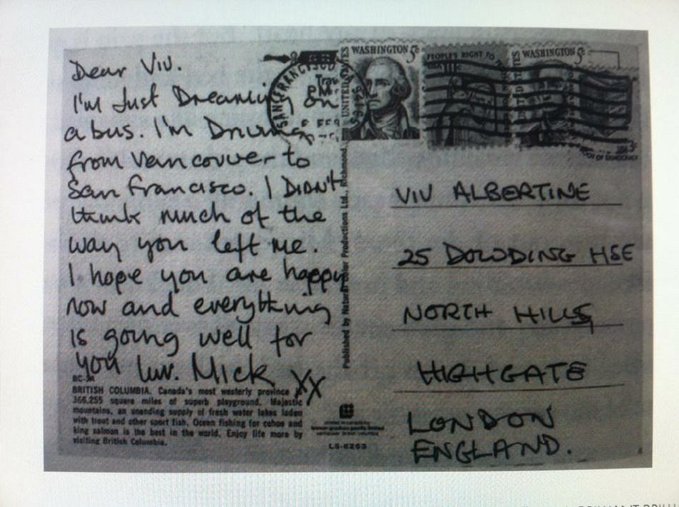 Dear Viv.
I'm Just Dreaming on
a bus. I'm Driving
from Vancouver to
San Francisco. I DIDN't
think much of the
way you left me.
I hope you are happy
now and everything
is going well for
you luv. MICK XX
BRITISH COLUMBIA. Canada's most westerly province is
366,255 square miles of superb playground. Majestic
mountains, an unending supply of fresh water lakes laden
with trout and other sport fish. Ocean fishing for cohoe and
king salmon is the best in the world. Enjoy life more by
visiting British Columbia.
Published by Natural Color Productions Ltd., Richmond,
LS-6263
SAN FRANCISCO
PM
UNITED STATES
WASHINGTON 5c
PEOPLE'S RIGHT TO
WASHINGTON 5c
VIV ALBERTINE
25 DOWDING HSE
NORTH HILL
HIGHGATE
LONDON
ENGLAND.